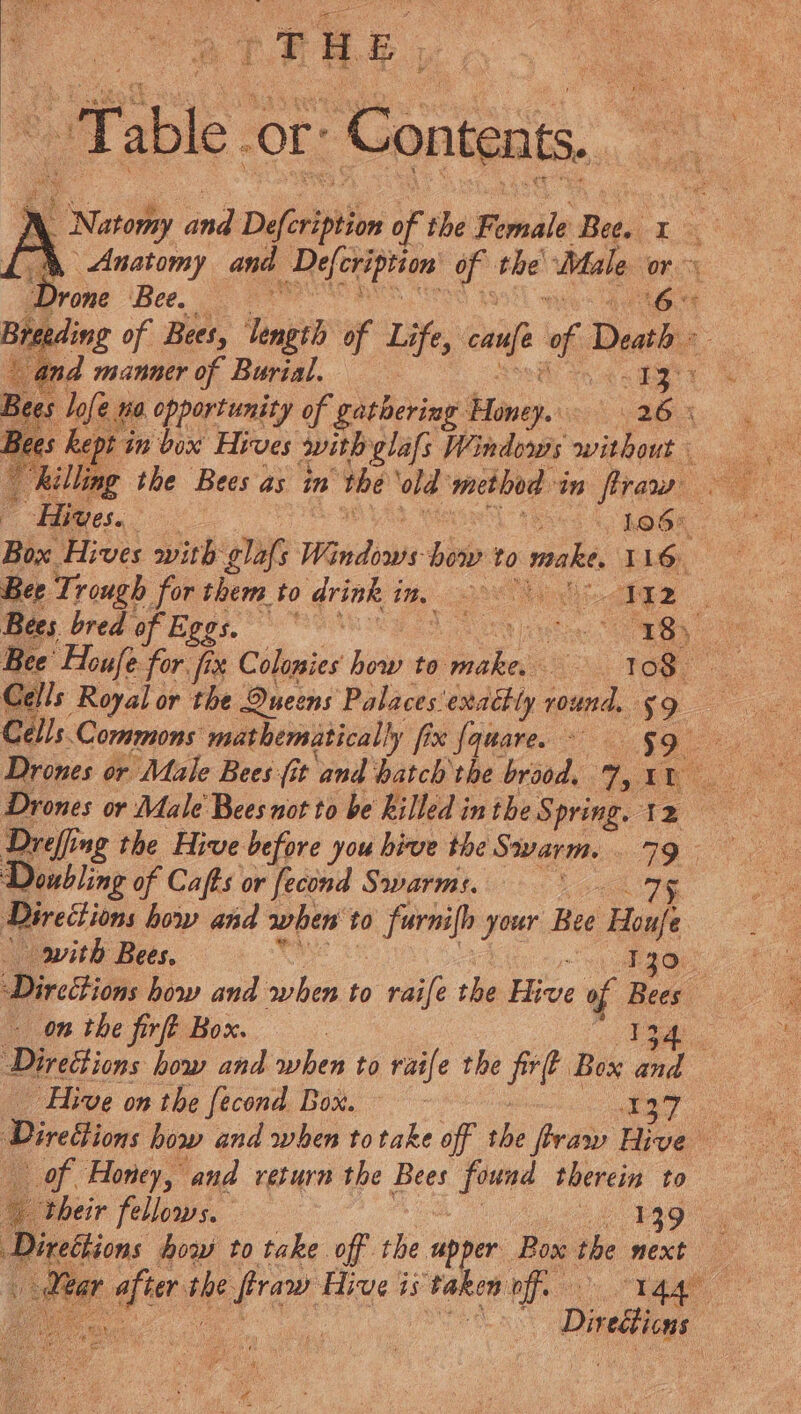 THE
Table or Contents.
A Natomy and Deſcription of the Female Bee. 1
Anatomy and Deſcription of the Male or
Drone Bee. 6
Breeding of Bees, length of Life, cauſe of Death
and manner of Burial. 13
Bees loſe no opportunity of gathering Honey. 26
Bees kept in box Hives with glaſs Windows without
killing the Bees as in the old method in ſtraw
Hives. 106
Box Hives with glaſs Windows how to make. 116
Bee Trough for them to drink in. 112
Bees bred of Eggs. 18
Bee Houſe for ſix Colonies how to make. 108
Cells Royal or the Queens Palaces exactly round. 59
Cells Commons mathematically ſix ſquare. 59
Drones or Male Bees ſit and hatch the brood. 7, 11
Drones or Male Bees not to be killed in the Spring. 12
Dreſſing the Hive before you hive the Swarm. 79
Doubling of Caſts or ſecond Swarms. 75
Directions how and when to furniſh your Bee Houſe
with Bees. 130
Directions how and when to raiſe the Hive of Bees
on the firſt Box. 134
Directions how and when to raiſe the firſt Box and
Hive on the ſecond Box. 137
Directions how and when to take off the ſtraw Hive
of Honey, and return the Bees found therein to
their fellows. 139
Directions how to take off the upper Box the next
Year after the ſtraw Hive is taken off. 144
Directions